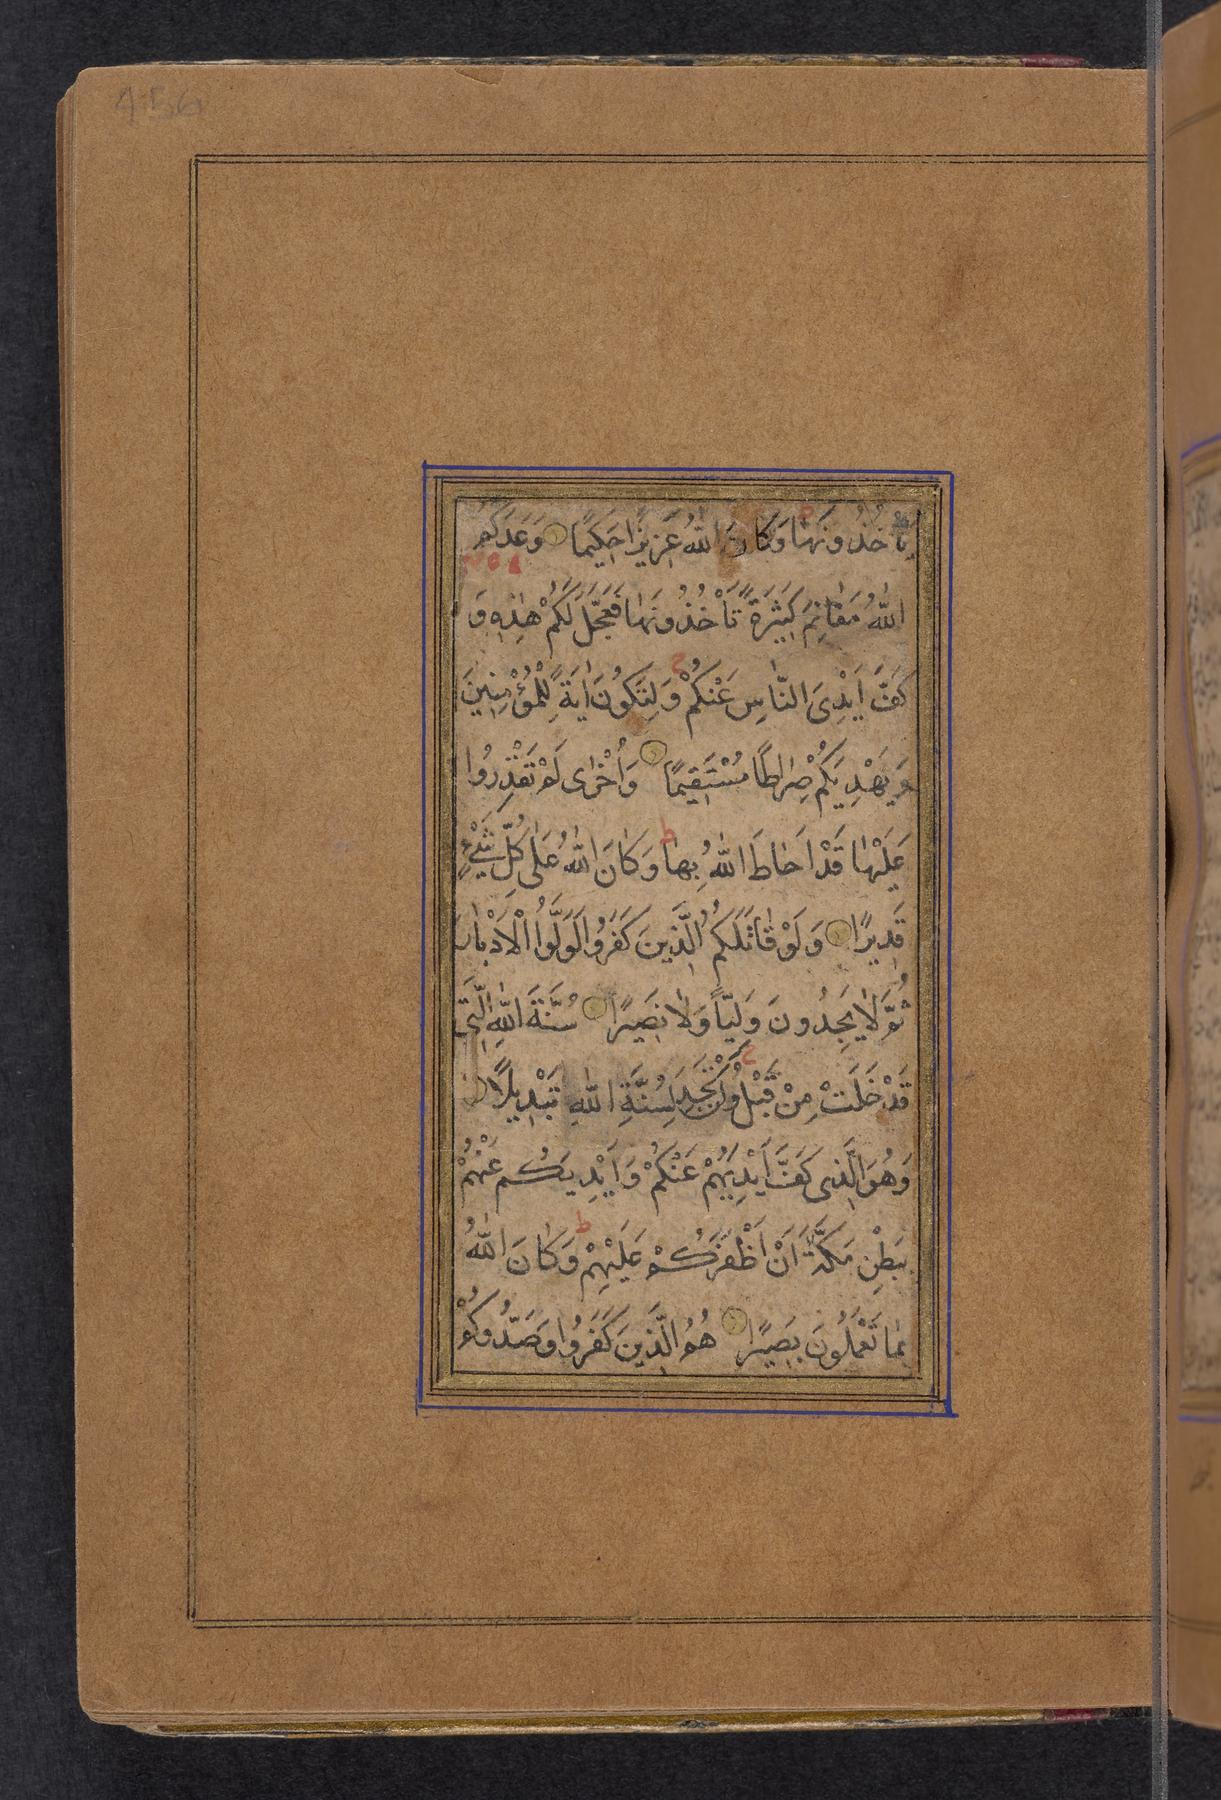 456
يَأْخُذُونَهَا وَكَانَ اللّٰهُ عَزِيزًا حَكِيمًا وَعَدَكُمُ
اللّٰهُ مَغَانِمَ كَثِيرَةً تَأْخُذُونَهَا فَعَجَّلَ لَكُمْ هٰذِهِ وَ
كَفَّ أَيْدِىَ النَّاسِ عَنْكُمْ وَلِتَكُونَ اٰيَةً لِلْمُؤْمِنِينَ
وَيَهْدِيَكُمْ صِرَاطًا مُسْتَقِيمًا وَأُخْرٰى لَمْ تَقْدِرُوا
عَلَيْهَا قَدْ اَحَاطَ اللّٰهُ بِهَا وَكَانَ اللّٰهُ عَلٰى كُلِّ شَيْءٍ
قَدِيرًا وَلَوْ قَاتَلَكُمُ الَّذِينَ كَفَرُوا لَوَلَّوُا الْاَدْبَارَ
ثُمَّ لَا يَجِدُونَ وَلِيًّا وَلَا نَصِيرًا سُنَّةَ اللّٰهِ الَّتِى
قَدْ خَلَتْ مِنْ قَبْلُ وَلَنْ تَجِدَ لِسُنَّةِ اللّٰهِ تَبْدِيلًا
وَهُوَ الَّذِى كَفَّ أَيْدِيَهُمْ عَنْكُمْ وَاَيْدِيَكُمْ عَنْهُمْ
بِبَطْنِ مَكَّةَ اَنْ اَظْفَرَكُمْ عَلَيْهِمْ وَكَانَ اللّٰهُ
بِمَا تَعْمَلُونَ بَصِيرًا هُمُ الَّذِينَ كَفَرُوا وَصَدُّوكُمْ